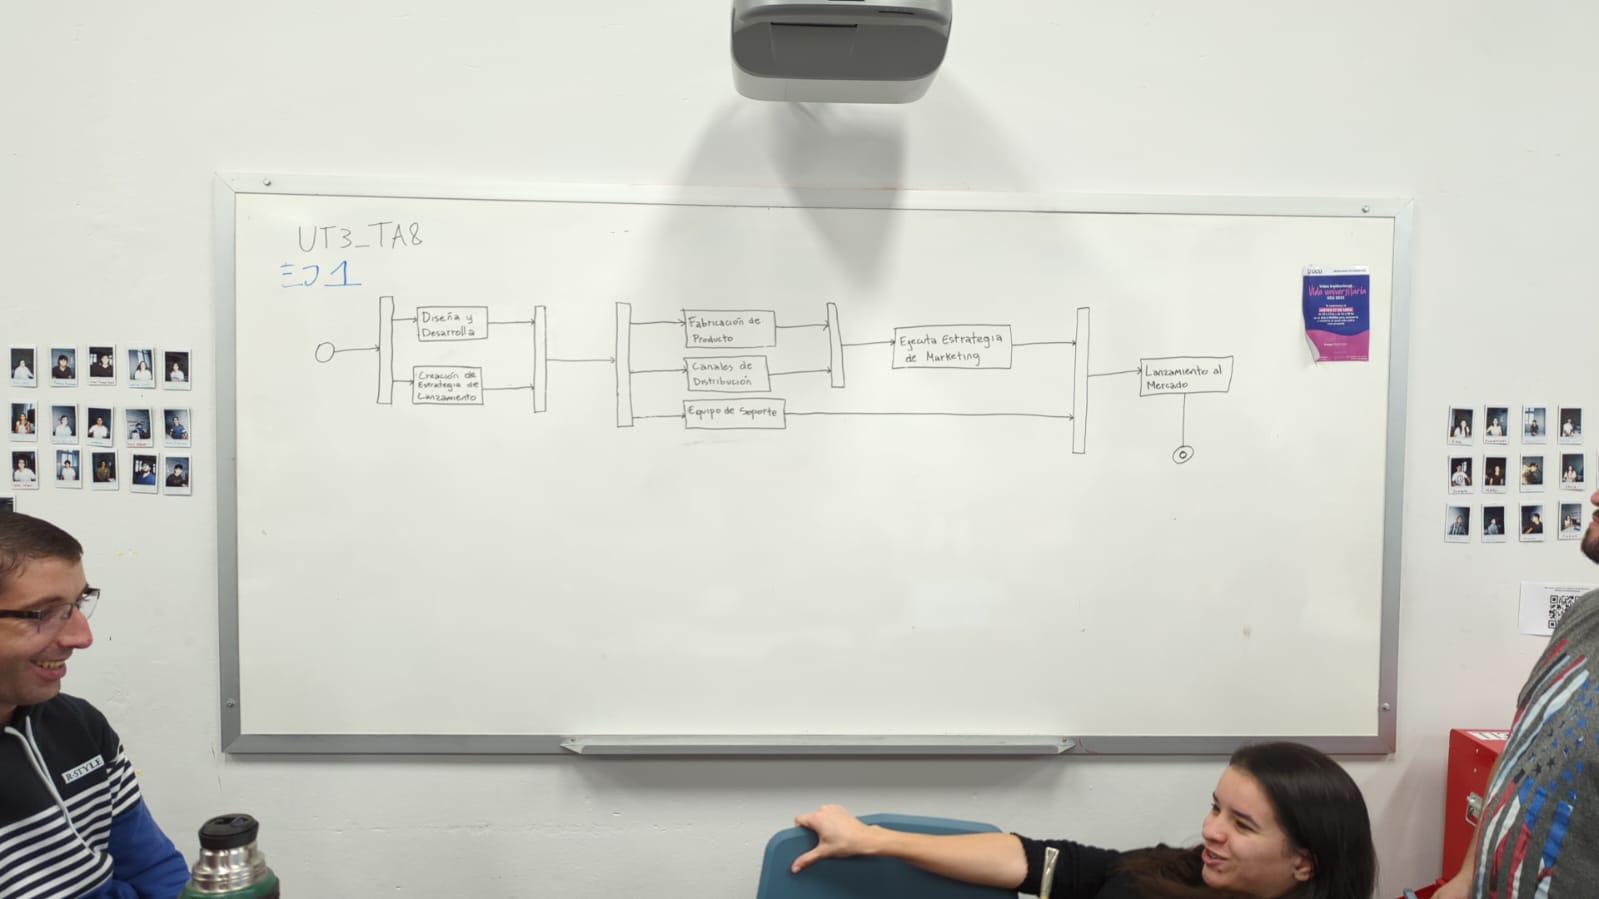 UT3_TA8
EJ1
Diseña y
Desarrolla
Creación de
Estrategia de
Lanzamiento
Fabricación de
Producto
Canales de
Distribución
Equipo de Soporte
Ejecuta Estrategia
de Marketing
Lanzamiento al
Mercado
Vida universitaria
R-STYLE